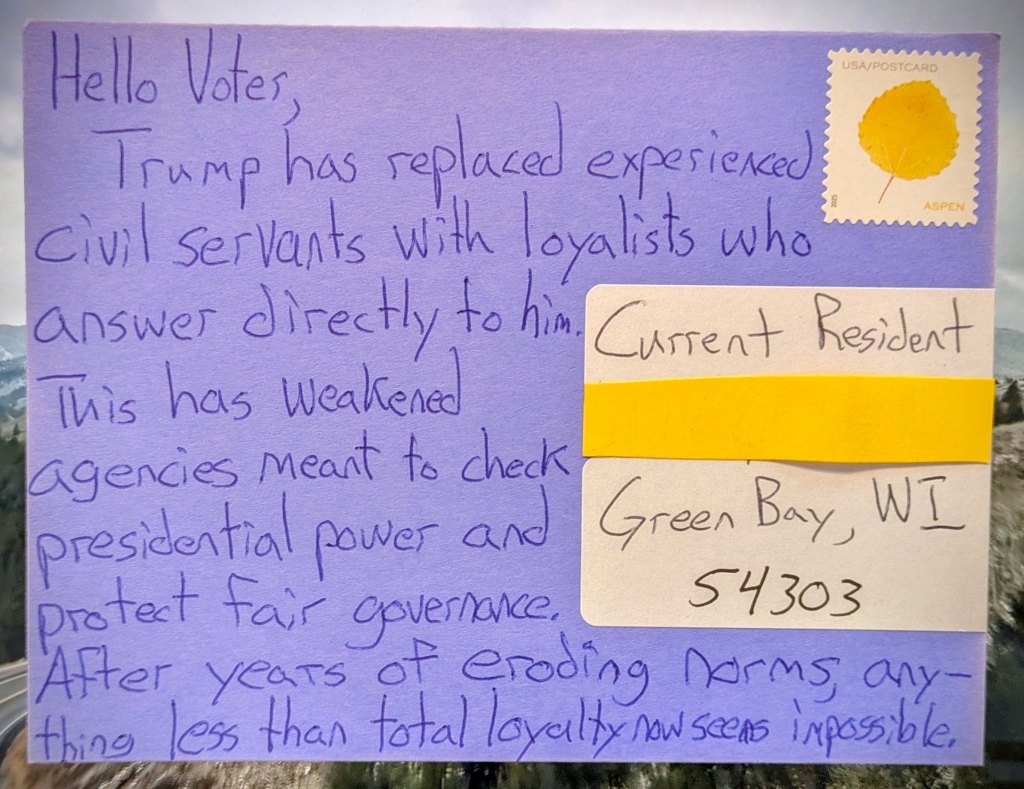 Hello Voter,
Trump has replaced experienced
civil servants with loyalists who
answer directly to him.
This has weakened
agencies meant to check
presidential power and
protect fair governance.
After years of eroding norms, any-
thing less than total loyalty now seems impossible.
USA/POSTCARD
2025
ASPEN
Current Resident
Green Bay, WI
54303